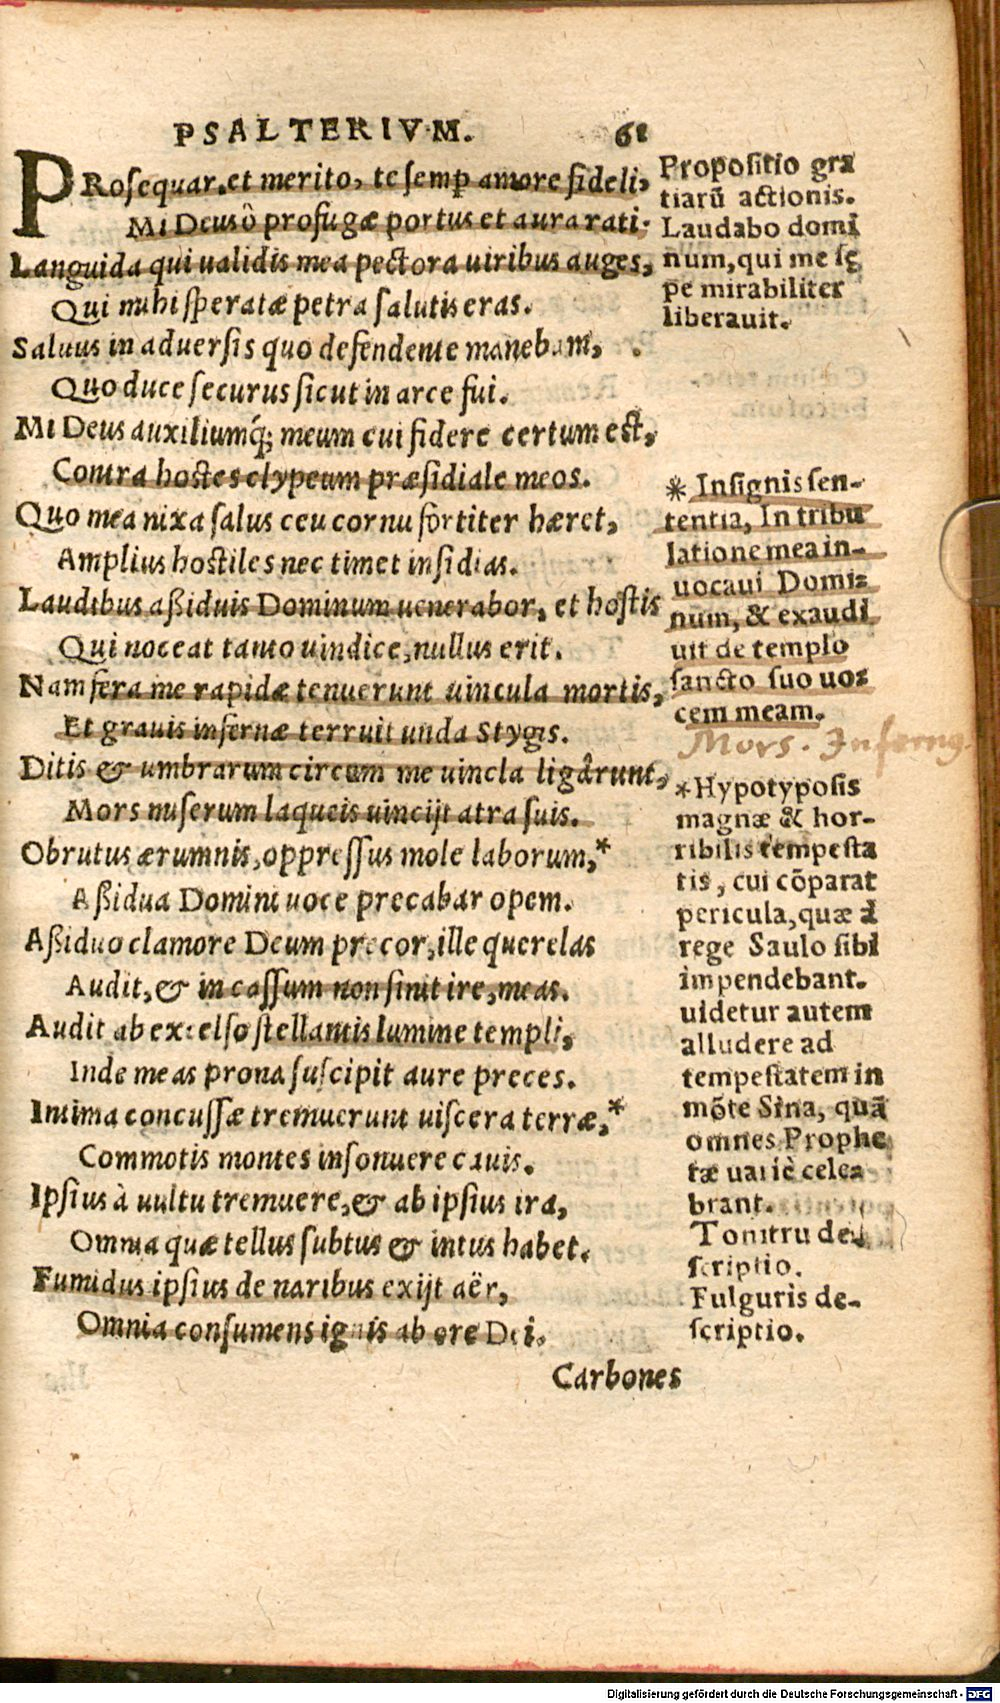 PSALTERIVM. 61
PRosequar, et merito, te semꝑ amore fideli,
Mi Deus ô profugæ portus et aura rati.
Languida qui ualidis mea pectora uiribus auges,
Qui mihi speratæ petra salutis eras.
Saluus in aduersis quo defendente manebam,
Quo duce securus sicut in arce fui.
Mi Deus auxiliumq́; meum cui fidere certum est,
Contra hostes clypeum præsidiale meos.
Quo mea nixa salus ceu cornu fortiter hæret,
Amplius hostiles nec timet insidias.
Laudibus aßiduis Dominum uenerabor, et hostis
Qui noceat tanto uindice, nullus erit.
Nam fera me rapidæ tenuerunt uincula mortis,
Et grauis infernæ terruit unda Stygis.
Ditis & umbrarum circum me uincla ligârunt,
Mors miserum laqueis uincijt atra suis.
Obrutus ærumnis, oppressus mole laborum,*
Aßidua Domini uoce precabar opem.
Aßiduo clamore Deum precor, ille querelas
Audit, & in cassum non sinit ire, meas.
Audit ab excelso stellantis lumine templi,
Inde meas prona suscipit aure preces.
Intima concussæ tremuerunt uiscera terræ,*
Commotis montes insonuere cauis.
Ipsius à uultu tremuere, & ab ipsius ira,
Omnia quæ tellus subtus & intus habet.
Fumidus ipsius de naribus exijt aër,
Omnia consumens ignis ab ore Dei.
Carbones
Propositio gra
tiarū actionis.
Laudabo domi
num, qui me sę
pe mirabiliter
liberauit.
* Insignis sen-
tentia, In tribu
latione mea in-
uocaui Domi-
num, & exaudi
uit de templo
sancto suo uo-
cem meam.
Mors. Infernus.
*Hypotyposis
magnæ & hor-
ribilis tempesta
tis, cui cōparat
pericula, quæ à
rege Saulo sibi
impendebant.
uidetur autem
alludere ad
tempestatem in
mōte Sina, quã
omnes Prophe
tæ uariè cele-
brant.
Tonitru de-
scriptio.
Fulguris de-
scriptio.
Digitalisierung gefördert durch die Deutsche Forschungsgemeinschaft - DFG